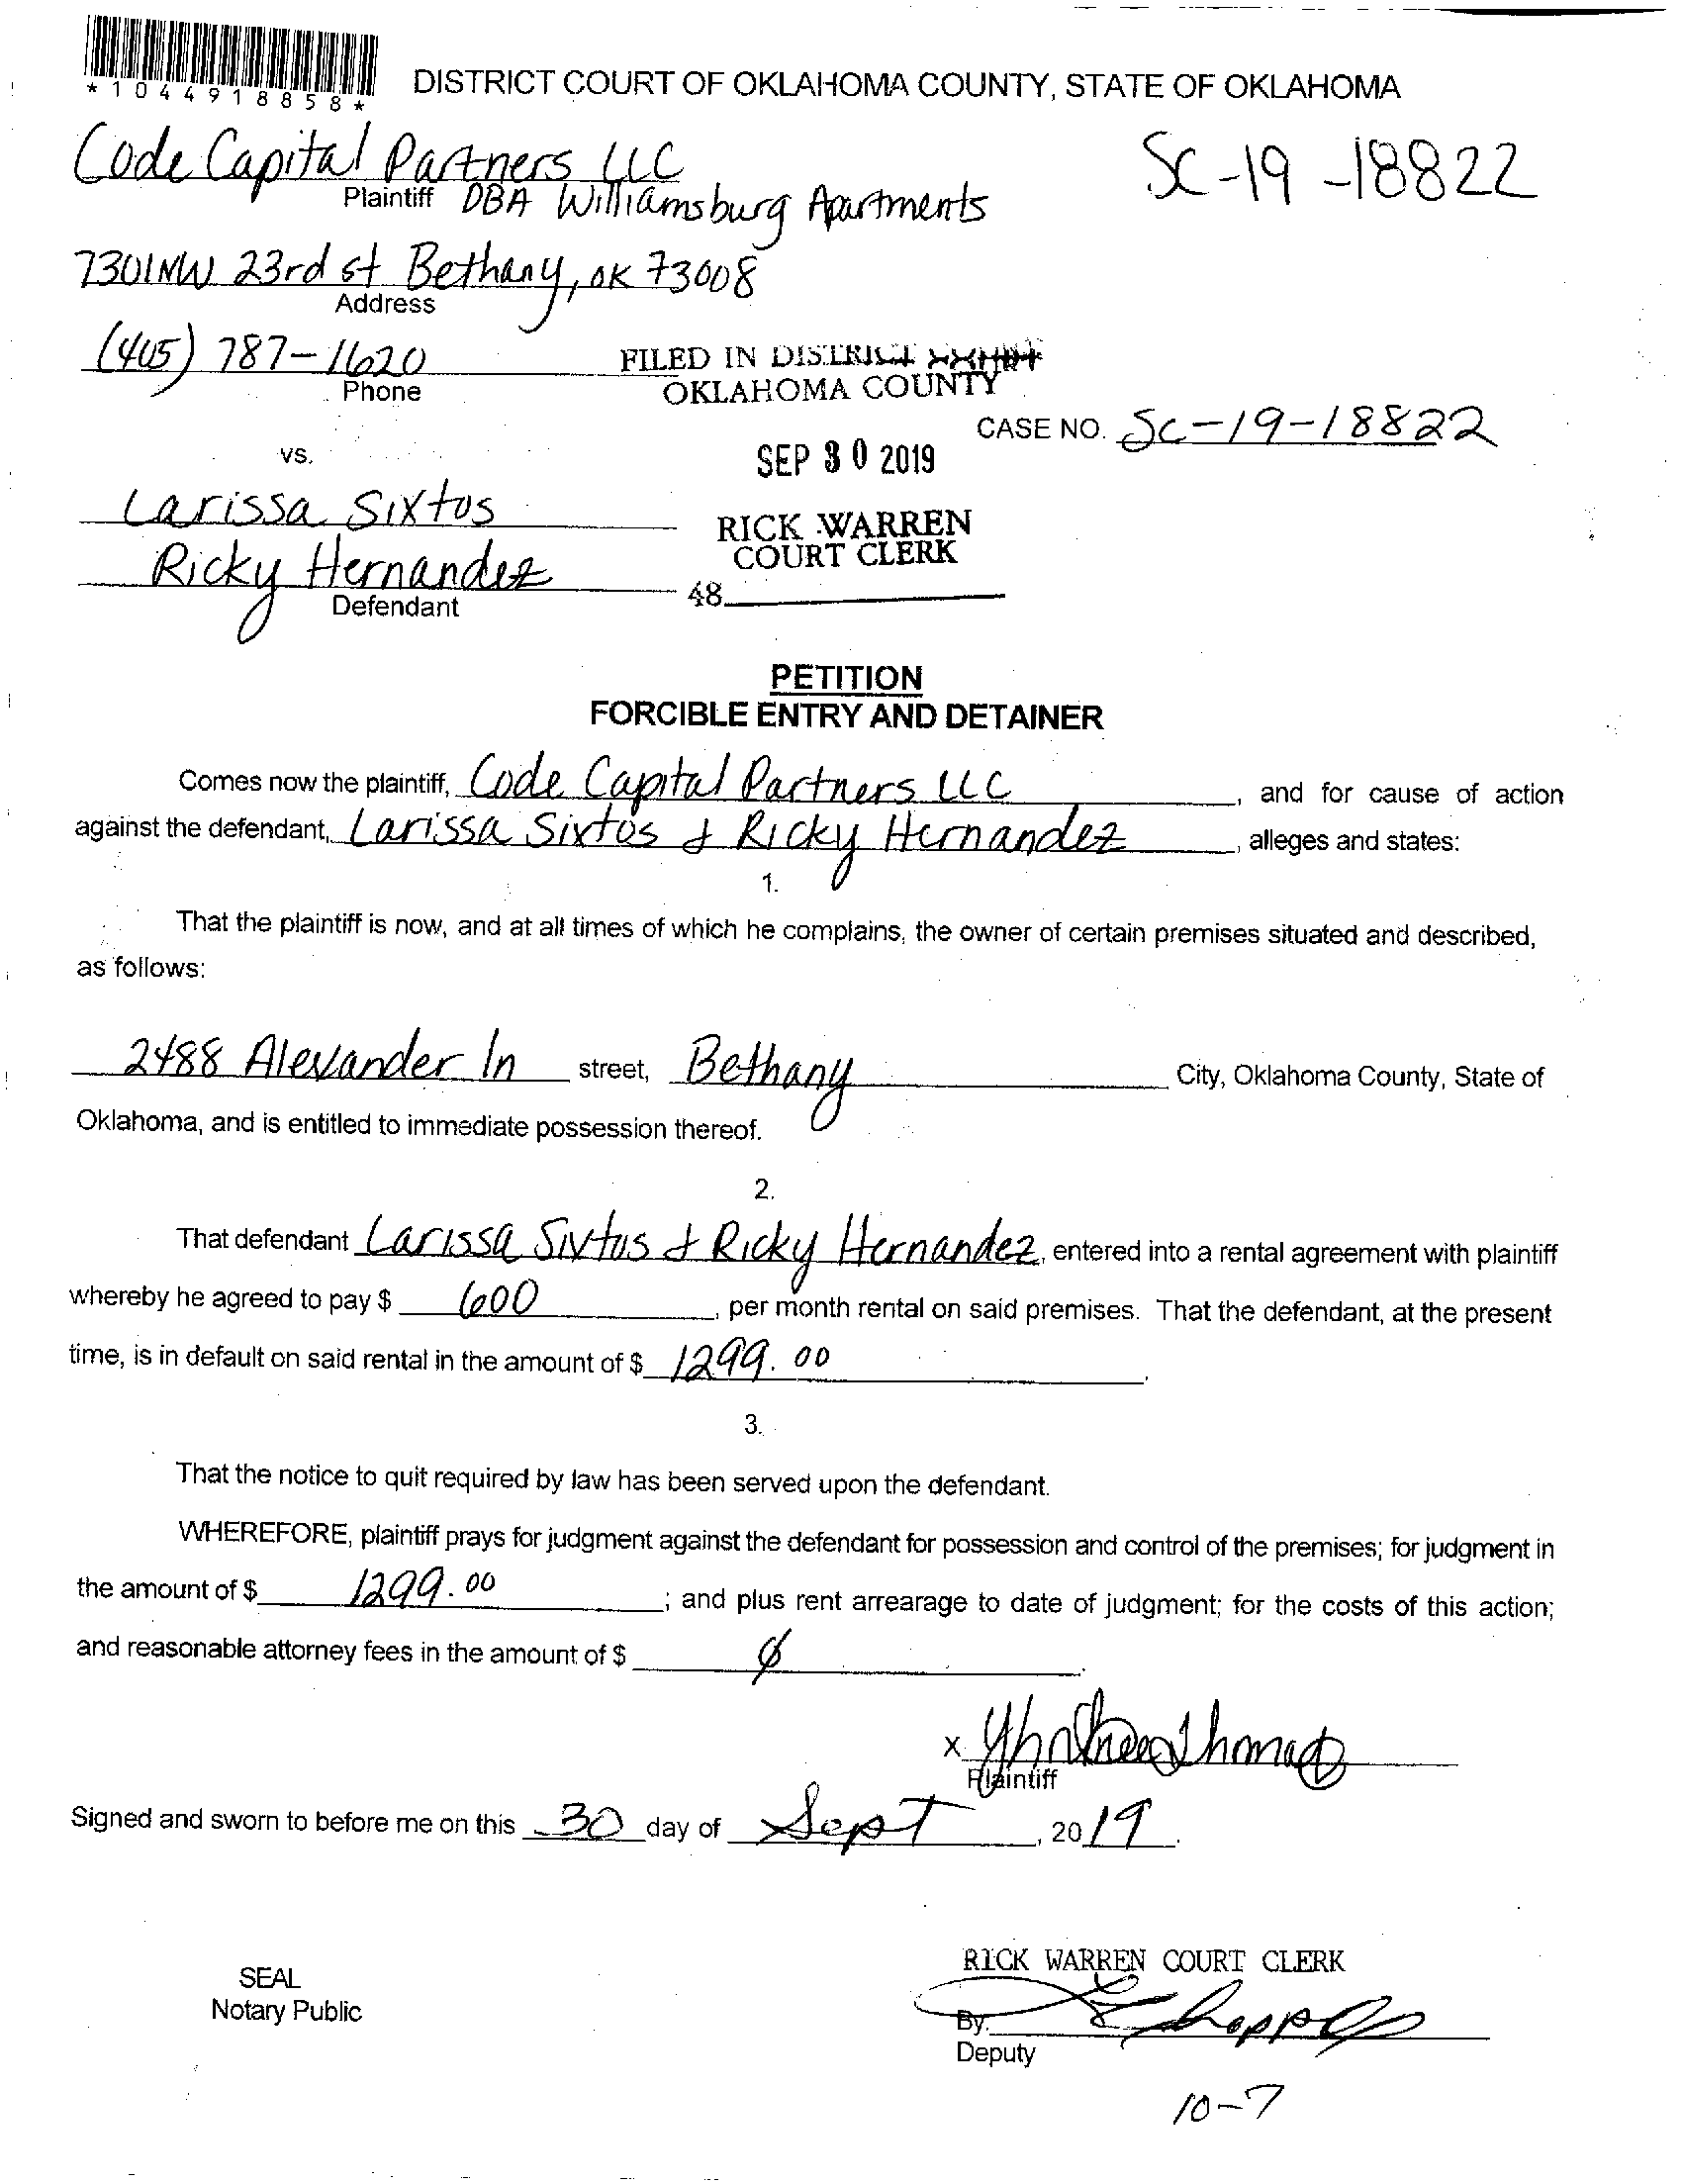 *1044918858*
DISTRICT COURT OF OKLAHOMA COUNTY, STATE OF OKLAHOMA
Code Capital Partners LLC
SC-19-18822
Plaintiff DBA Williamsburg Apartments
7301 NW 23rd st Bethany, OK 73008
Address
(405) 787-1620
Phone
FILED IN DISTRICT
OKLAHOMA COUNTY
CASE NO. SC-19-18822
vs.
SEP 30 2019
Larissa Sixtos
RICK WARREN
COURT CLERK
Ricky Hernandez
48
Defendant
PETITION
FORCIBLE ENTRY AND DETAINER
Comes now the plaintiff, Code Capital Partners LLC, and for cause of action
against the defendant, Larissa Sixtos & Ricky Hernandez, alleges and states:
1.
That the plaintiff is now, and at all times of which he complains, the owner of certain premises situated and described,
as follows:
2488 Alexander ln street, Bethany City, Oklahoma County, State of
Oklahoma, and is entitled to immediate possession thereof.
2.
That defendant Larissa Sixtos & Ricky Hernandez, entered into a rental agreement with plaintiff
whereby he agreed to pay $ 600, per month rental on said premises. That the defendant, at the present
time, is in default on said rental in the amount of $ 1299.00.
3.
That the notice to quit required by law has been served upon the defendant.
WHEREFORE, plaintiff prays for judgment against the defendant for possession and control of the premises; for judgment in
the amount of $ 1299.00; and plus rent arrearage to date of judgment; for the costs of this action;
and reasonable attorney fees in the amount of $ 0.
x
Plaintiff
Signed and sworn to before me on this 30 day of Sept, 2019.
RICK WARREN COURT CLERK
SEAL
Notary Public
By.
Deputy
10-7